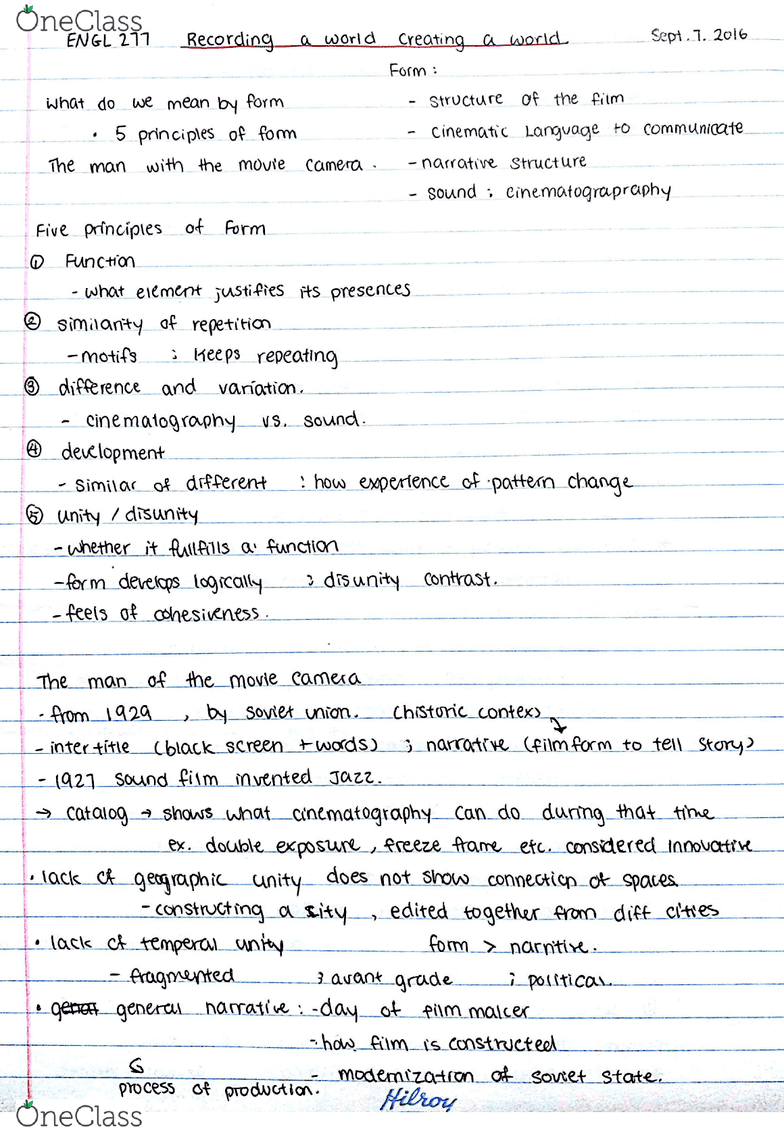 OneClass
ENGL 277 Recording a world Creating a world Sept. 7. 2016
Form :
what do we mean by form - structure of the film
• 5 principles of form - cinematic Language to communicate
The man with the movie camera. - narrative structure
- sound ; cinematograpraphy
Five principles of Form
① Function
- what element justifies its presences
② similarity of repetition
- motifs ; keeps repeating
③ difference and variation.
- cinematography vs. sound.
④ development
- similar of different : how experience of pattern change
⑤ unity / disunity
- whether it fullfills a function
- form develops logically ; disunity contrast.
- feels of cohesiveness.
The man of the movie camera
- from 1929 , by soviet union. (historic context)
- intertitle (black screen + words) ; narrative (film form to tell story)
- 1927 sound film invented Jazz.
→ catalog → shows what cinematography can do during that time
ex. double exposure, freeze frame etc. considered innovative
• lack of geographic unity does not show connection of spaces
- constructing a city , edited together from diff cities
• lack of temperal unity form > narntive.
- fragmented ; avant grade ; political.
• general narrative : - day of film maker
- how film is constructed
process of production. - modernization of soviet state.
Hilroy
OneClass